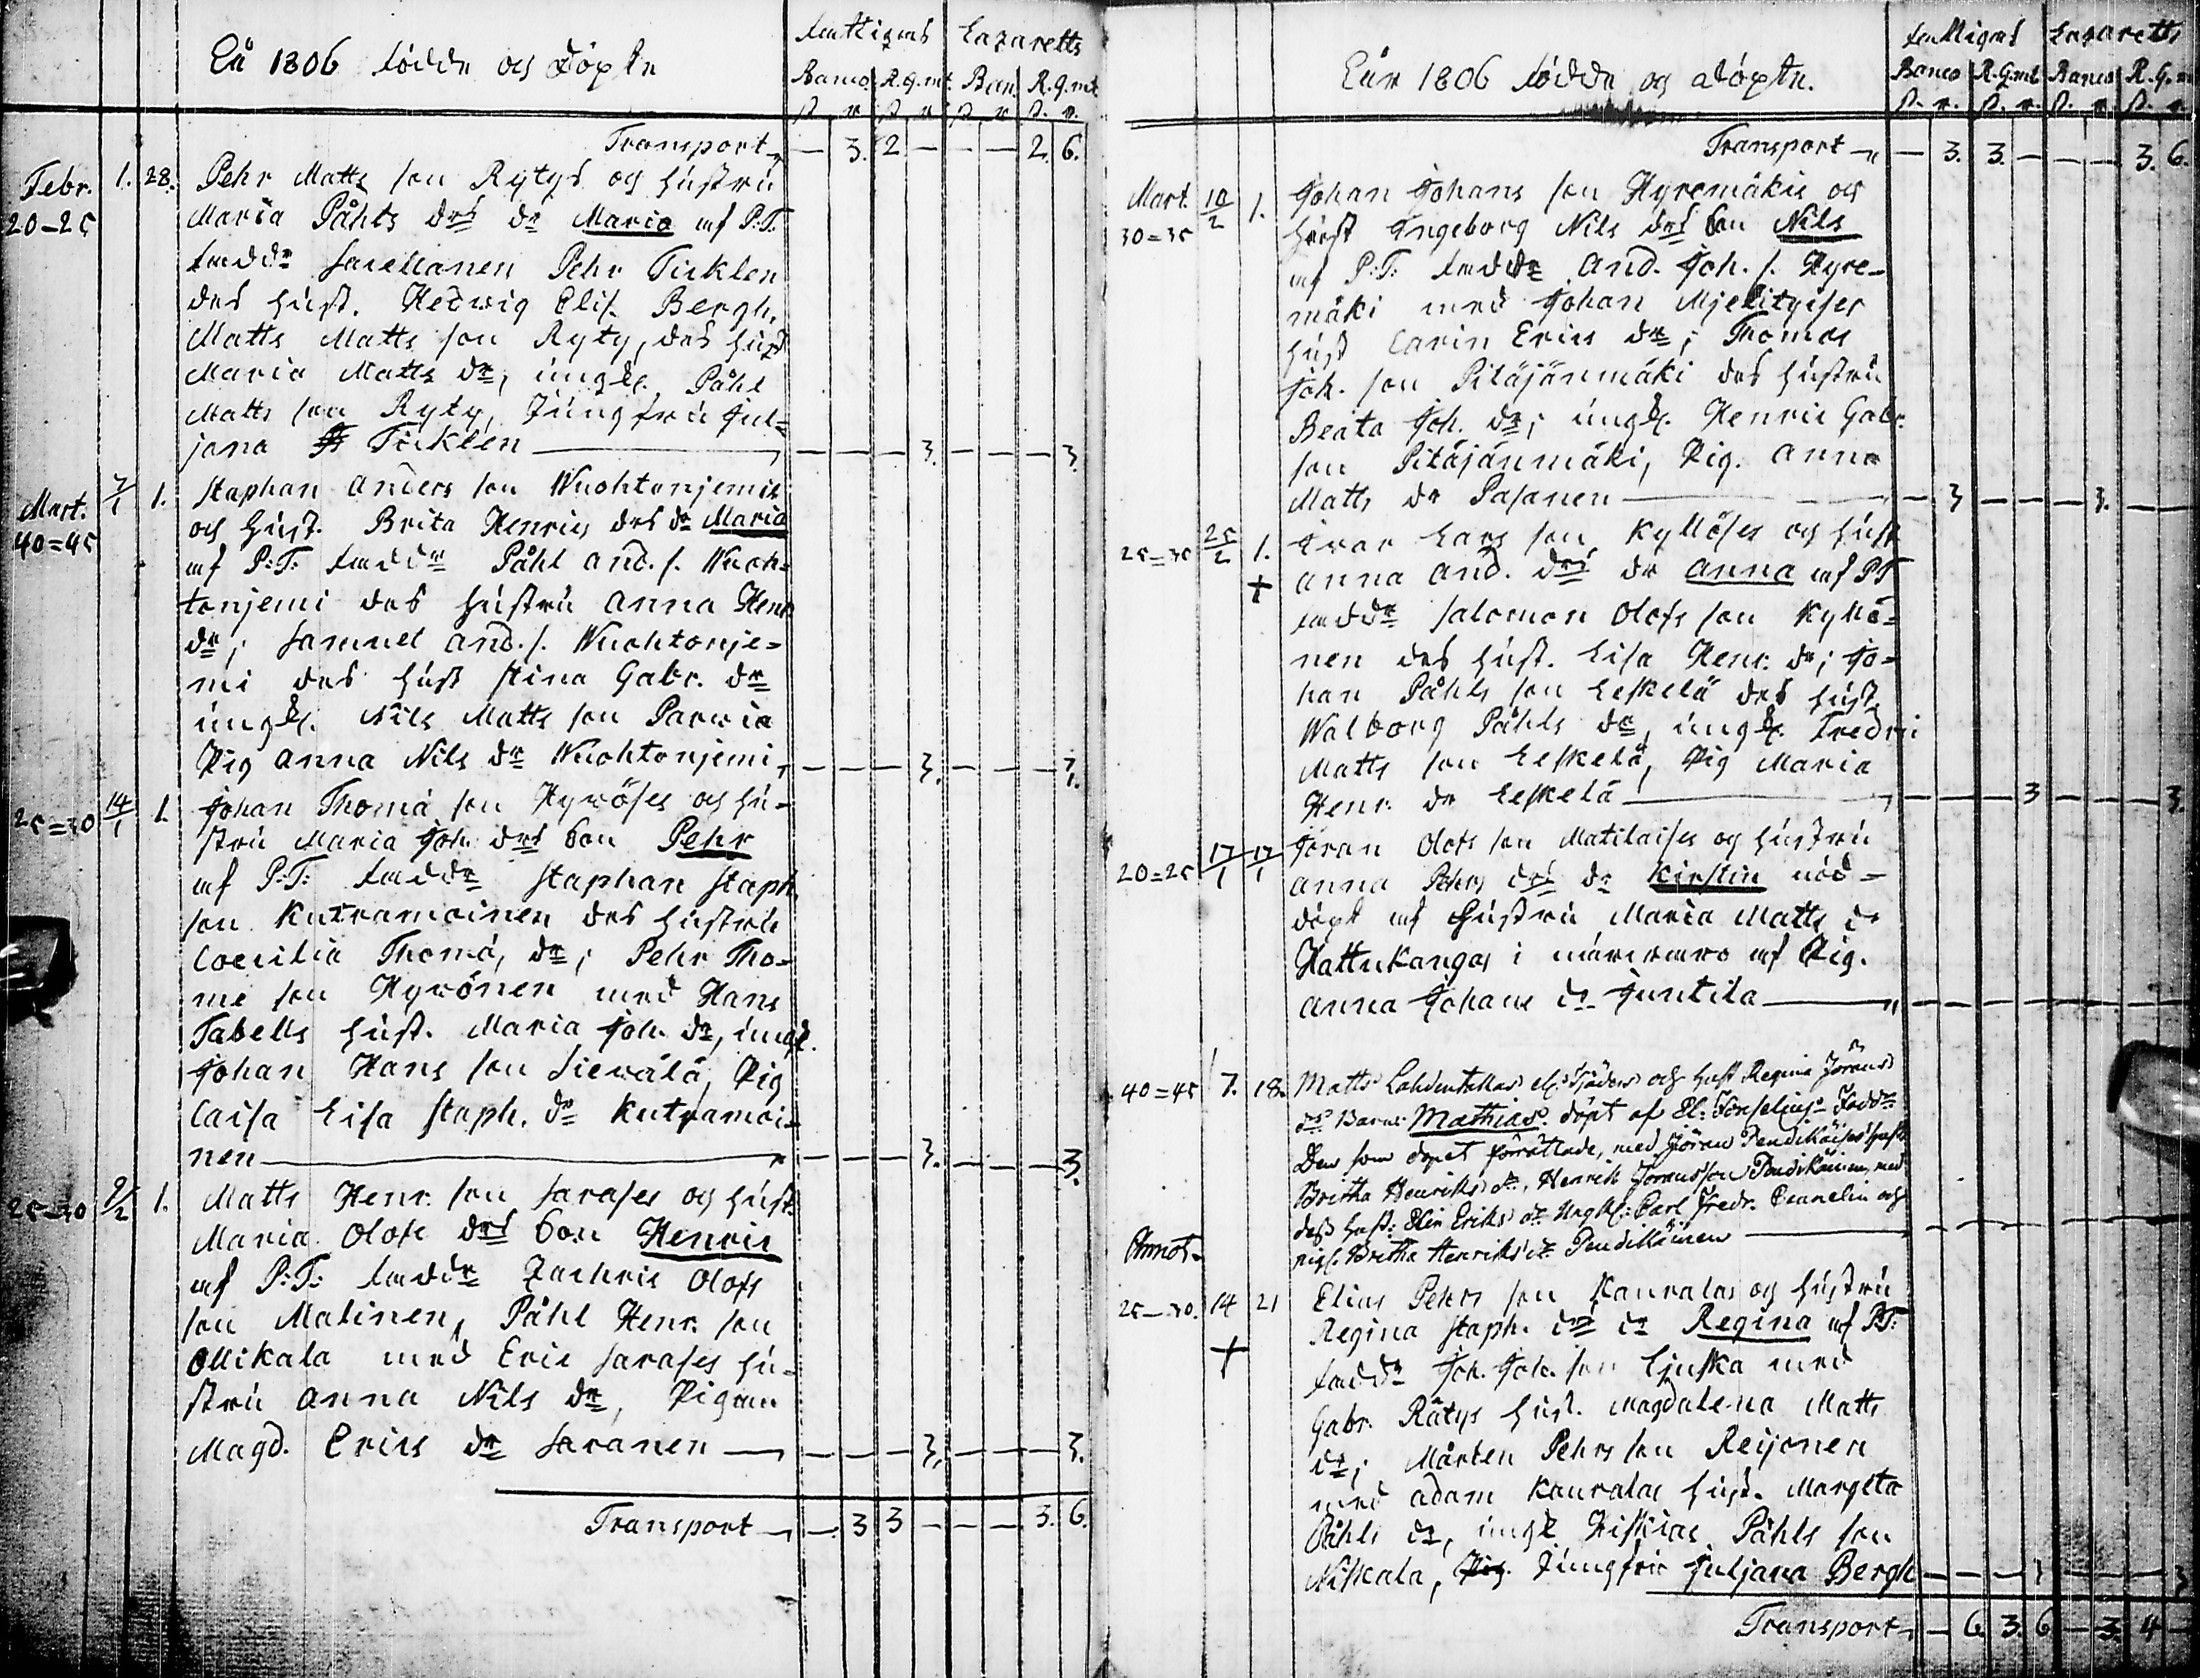 Åhr 1806 födde och döpte
fattigas Lazaretts
Banco. R.g.mt. Ban. R.g.mt.
Transport — 3. 2 — — — 2. 6.
Febr. 1. 28. Pehr Matts son Rytys och hustru
20-25 Maria Påhls drs dr Maria af P:T.
fadd:r Pehr Ticklen
des hust. Hedwig Elis. Bergh,
Matts Matts son Ryty, des hust
Maria Matts dr, ungk. Påhl
Matts son Ryty, Jungfru Jul-
jana Ticklen — — — 3. — — — 3.
Mart. 7/1 1. Staphan Anders son Wuohtonjemis
40=45 och hust. Brita Henrics drs dr Maria
af P:T: faddr Påhl And. s. Wuoh-
tonjemi des hustru Anna Henr.
dr; Samuel And. s. Wuohtonje-
mi des hust Stina Gabr. dr
ungk. Nils Matts son Parwia
Pig Anna Nils dr Wuohtonjemi, — — — 3. — — — 3.
25=30 14/1 1. Johan Thomæ son Hyvöses och hu-
stru Maria Joh. drs son Pehr
af P:T: faddr Staphan Staph.
son Kutramoinen des hustru
Coecilia Thomæ, dr; Pehr Tho-
mæ son Hyvönen med Hans
Tabells hust. Maria Joh. dr, ungk.
Johan Hans son Siewälä, Pig
Caisa Lisa Staph. dr Kutramoi-
nen — — — 3. — — — 3.
25-30 9/2 1. Matts Henr. son Sarases och hust.
Maria Olofs drs son Henric
af P:T: faddr Zachris Olofs
son Malinen, Påhl Henr. son
Ollikala med Eric Sarases hu-
stru Anna Nils dr, Pigan
Magd. Erics dr Saranen — — — 3. — — — 3.
Transport — 3 3 — — — 3. 6.
Åhr 1806 födde och döpte.
fattigas Lazaretts
Banco R.G.mt. Banco R.G.mt
Transport — 3. 3. — — — 3. 6.
Mart. 10/2 1. Johan Johans son Hyremäkis och
30=35 hust Ingeborg Nils drs son Nils
af P:T: faddr And. Joh. s. Hyre-
mäki med Johan
hust Carin Erics dr; Thomas
Joh. son Pitäjänmäki des hustru
Beata Joh. dr; ungk. Henric Gabr.
son Pitäjänmäki, Pig. Anna
Matts dr Pasanen — 3 — — — 3. —
25=35 25/2 1. Ivar Lars son Kyllöses och hust
+ Anna And. drs dr Anna af PT
faddr Salomon Olofs son Kyllö-
nen des hust. Lisa Henr. dr; Jo-
han Påhls son Leskelä des hust.
Walborg Påhls dr, ungk. Fredric
Matts son Leskelä, Pig Maria
Henr. dr Leskelä — — — 3 — — — 3.
20=25 17/1 17/1 Jöran Olofs son Matilaises och hustru
Anna Pehrs drs dr Kirstin nöd-
döpt af hustru Maria Matts dr
Hattukangas i närvaro af Pig.
Anna Johans dr Juntila — — — — — — —
40=45 7. 18. Matts Lahdentakas och hust Regina Jörans
dr Barn: Mathias. döpt af El: Fonselius. Faddr
Den som döpet förrättade, med Jöran Pendikäises hust:
Britha Henriks dr, Henrik Jöransson Pendikäinen, med
dess hust: Elin Eriks dr Ungk: Carl Fredr. Cranelin och
Annot. pig. Britha Henriks dr Pendikäinen — — — — — — —
25-30. 14 21 Elias Pehrs son Kauralas och hustru
+ Regina Staph. drs dr Regina af PT:
faddr Joh. Joh. son Ljuska med
Gabr. Rätys hust. Magdalena Matts
dr; Mårten Pehrs son Reijonen
med Adam Kauralas hust. Margeta
Påhls dr, ungk Hiskias Påhls son
Niskala, Jungfru Juljana Bergh — — — 3 — — — 3
Transport — 6. 3. 6 — 3. 4 —